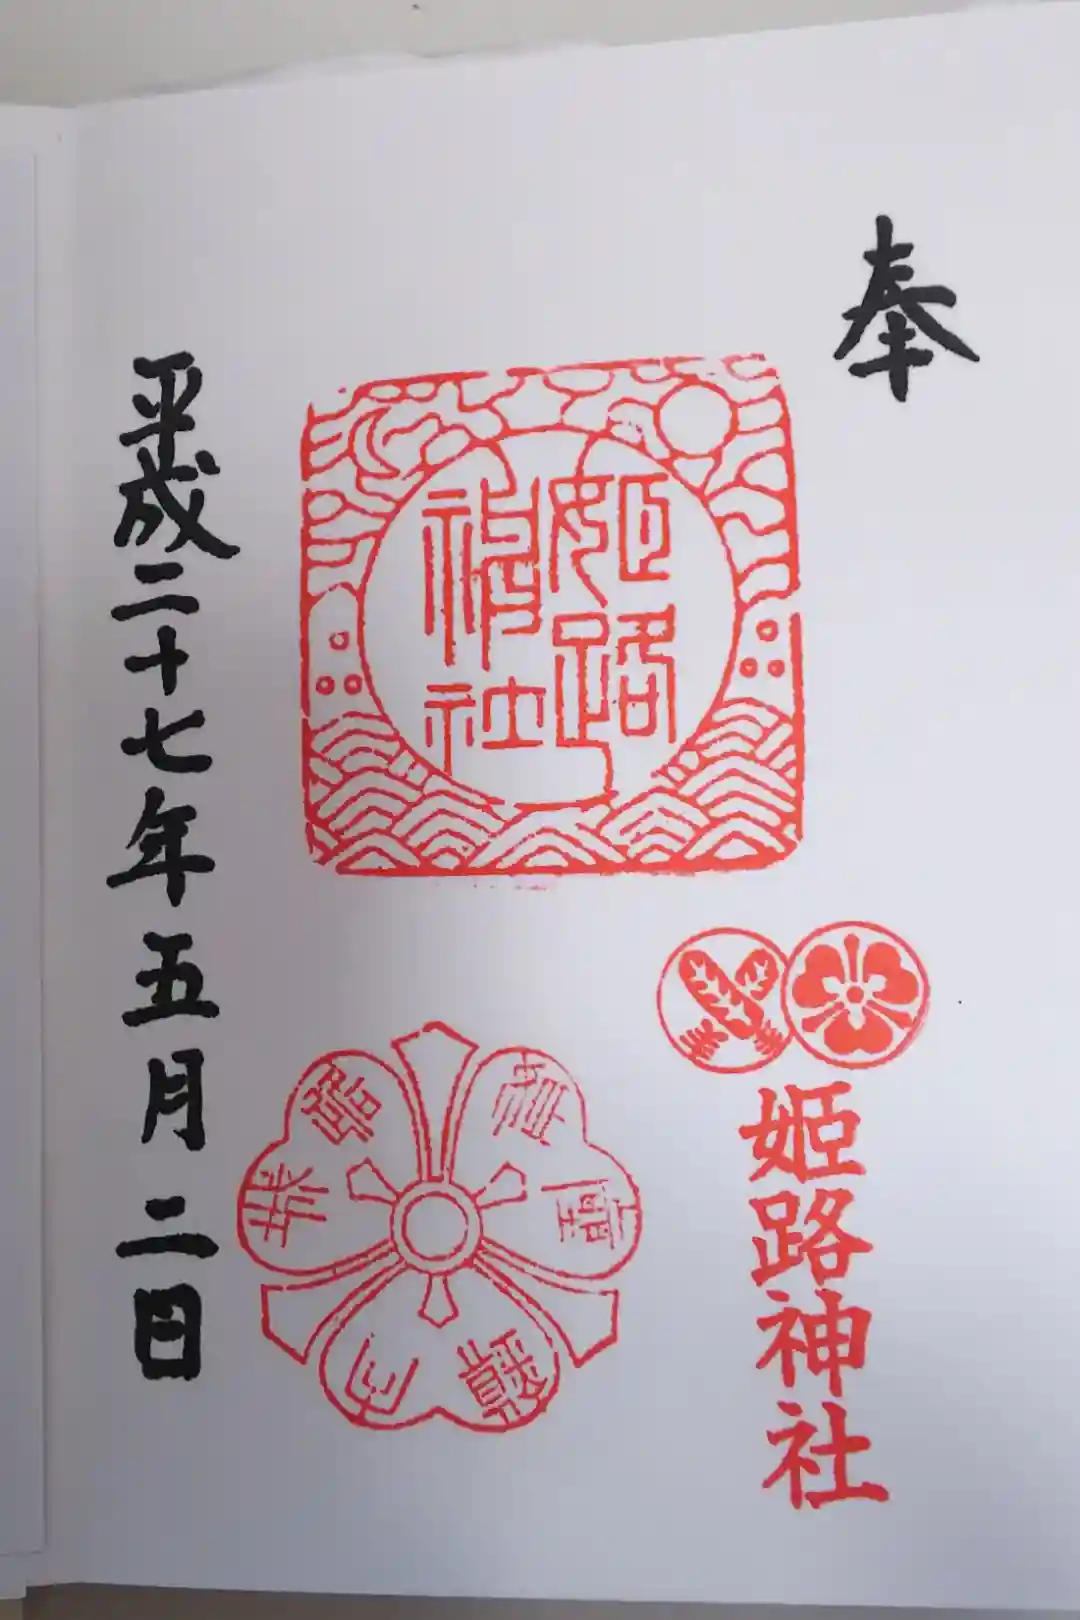 奉
姫路神社
姫路神社
平成二十七年五月二日